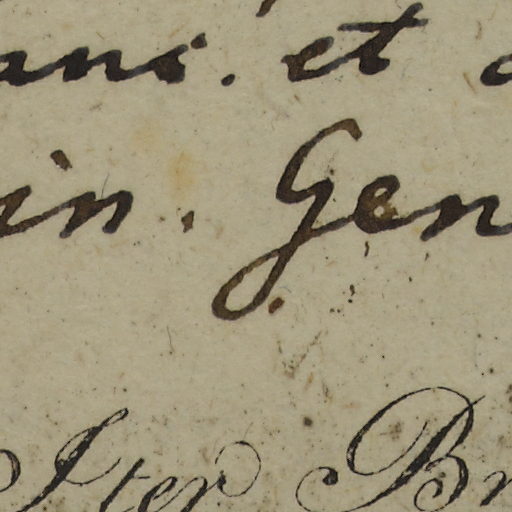 ans. et
in. Gen
Iter Br